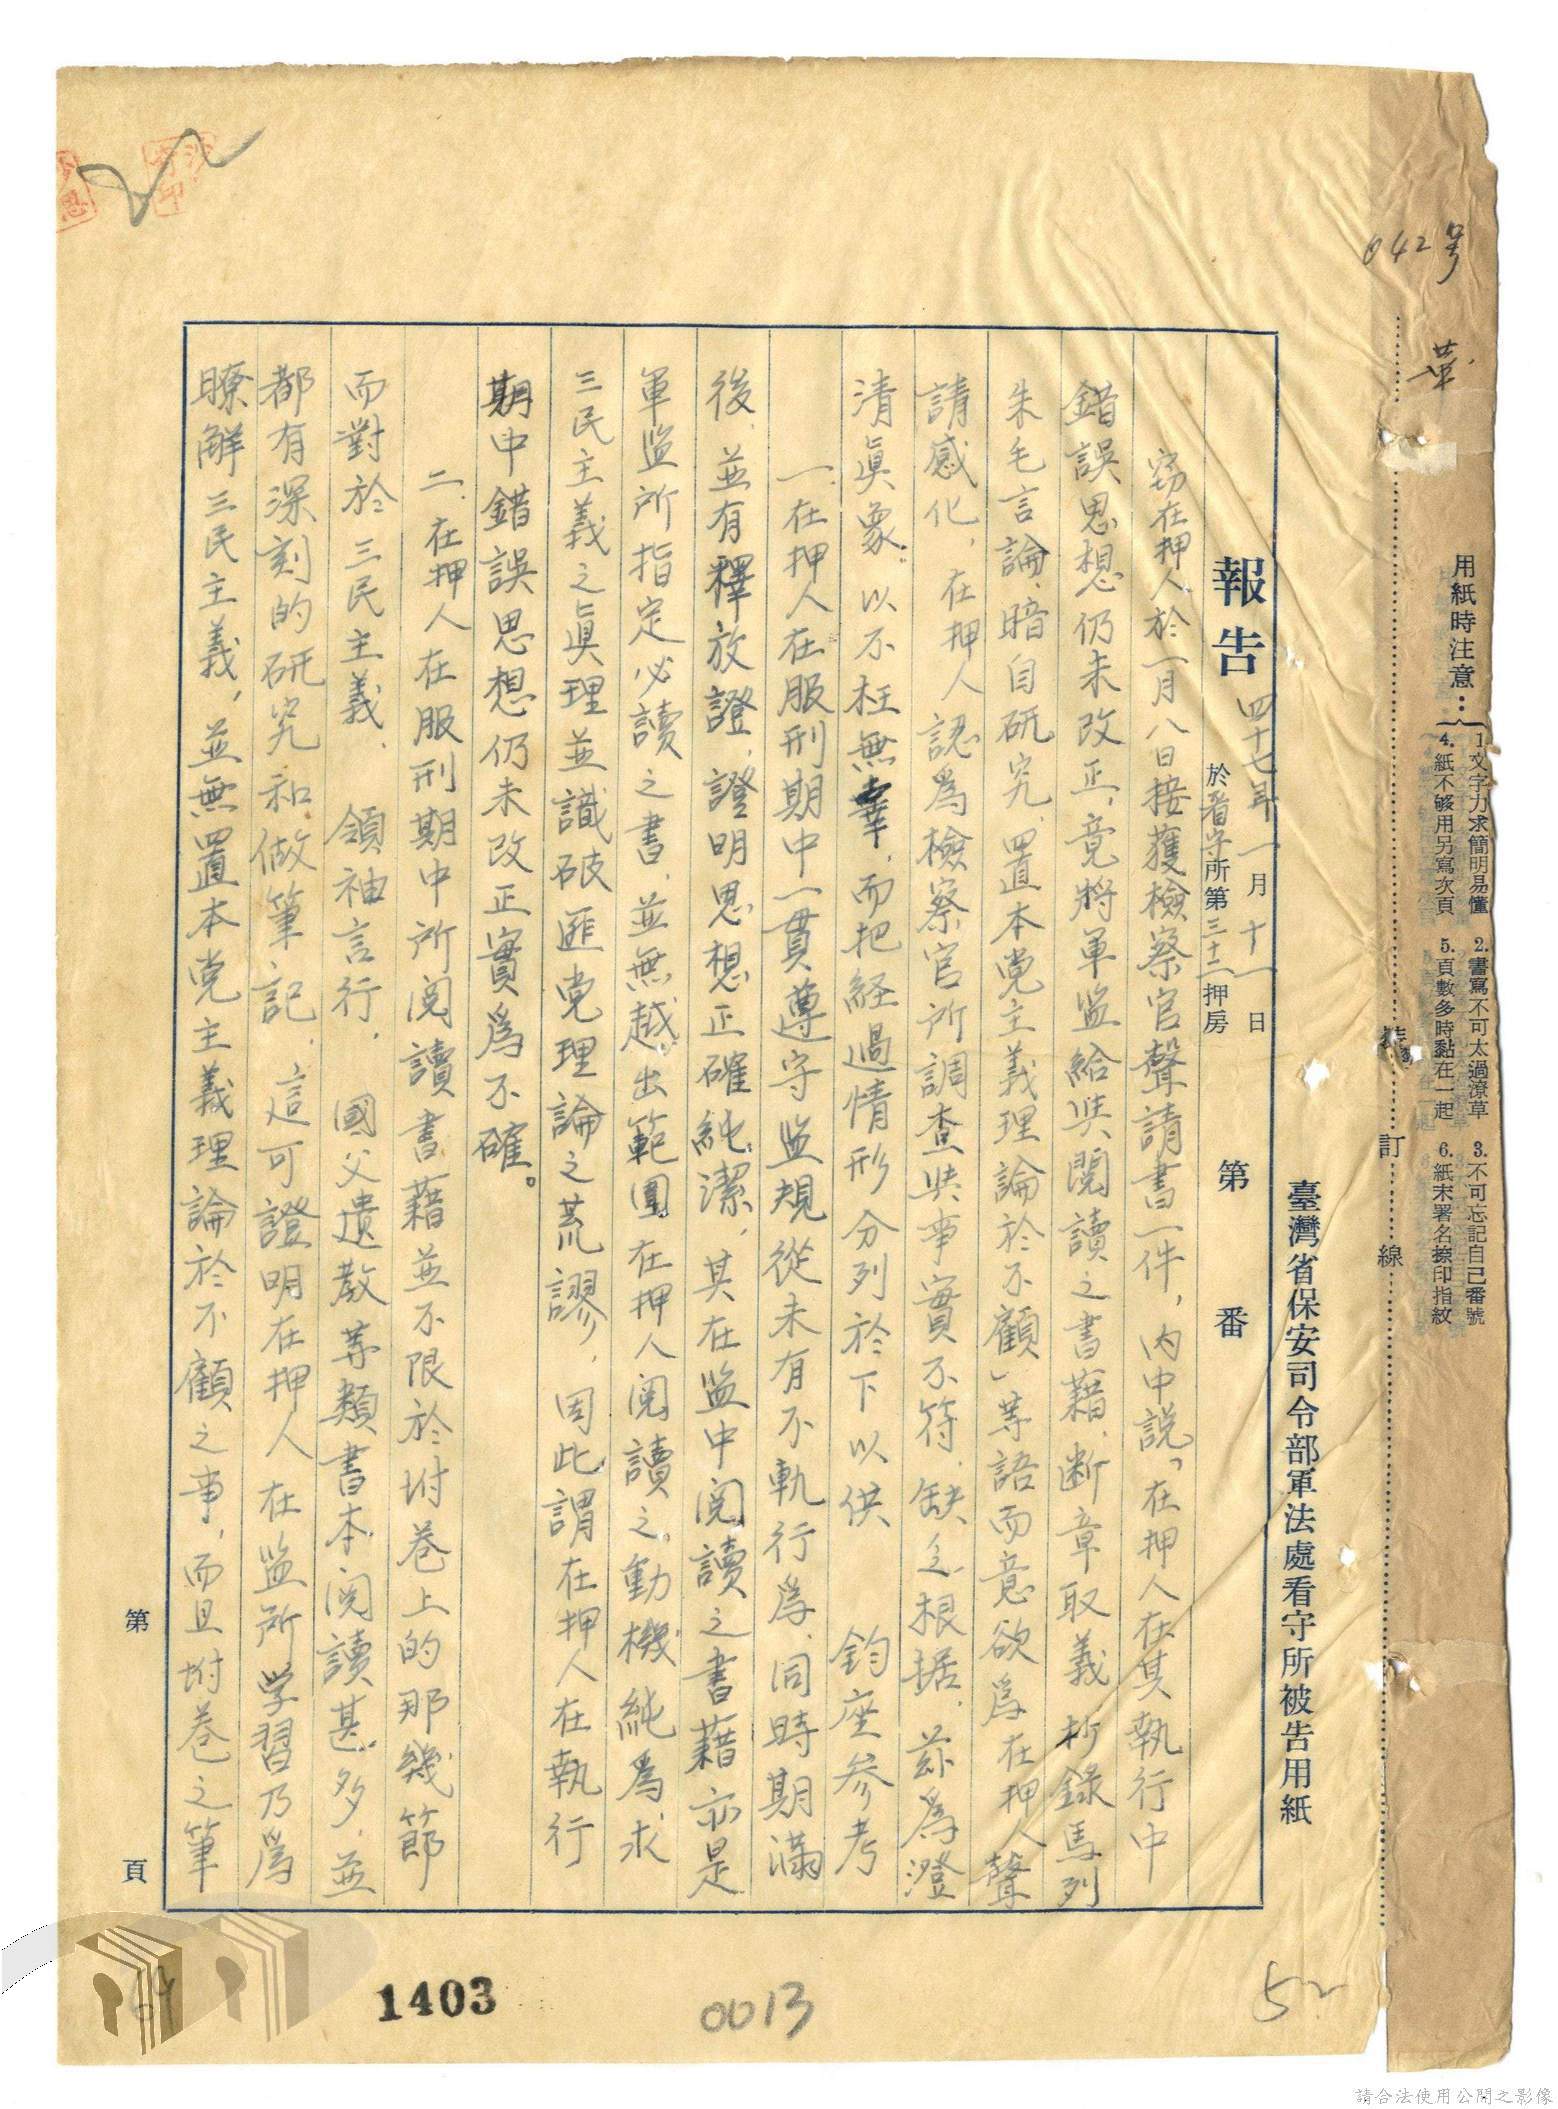 042号
華
用紙時注意：
1.文字力求簡明易懂 2.書寫不可太過潦草 3.不可忘記自己番號
4.紙不够用另寫次頁 5.頁數多時黏在一起 6.紙末署名捺印指紋
裝 訂 線
臺灣省保安司令部軍法處看守所被告用紙
報告 四十七年一月十一日 第 番
於看守所第三十二押房
窃在押人於一月八日接獲檢察官聲請書一件，内中説「在押人在其執行中
錯誤思想仍未改正，竟將軍监給與閱讀之書藉，断章取義，抄錄馬列
朱毛言論，暗自研究，置本党主義理論於不顧」等語而意欲爲在押人聲
請感化，在押人認爲檢察官所調查與事實不符，缺乏根据，茲爲澄
清眞象，以不枉無辜，而把経過情形分列於下以供 鈞座参考
一.在押人在服刑期中一貫遵守监規從未有不軌行爲，同時期滿
後，並有釋放證，證明思想正確純潔，其在监中閱讀之書藉亦是
軍监所指定必讀之書，並無越出範圍，在押人閱讀之動機純爲求
三民主義之眞理並識破匪党理論之荒謬，因此，謂在押人在執行
期中錯誤思想仍未改正實爲不確。
二.在押人在服刑期中所閱讀書藉並不限於坿卷上的那幾節
而對於三民主義，領袖言行， 國父遺敎等類書本，閱讀甚多，並
都有深刻的研究和做筆記，這可證明在押人在监所学習乃爲
瞭解三民主義，並無置本党主義理論於不顧之事，而且坿卷之筆
第 頁
1403
0013
52
64
請合法使用公開之影像